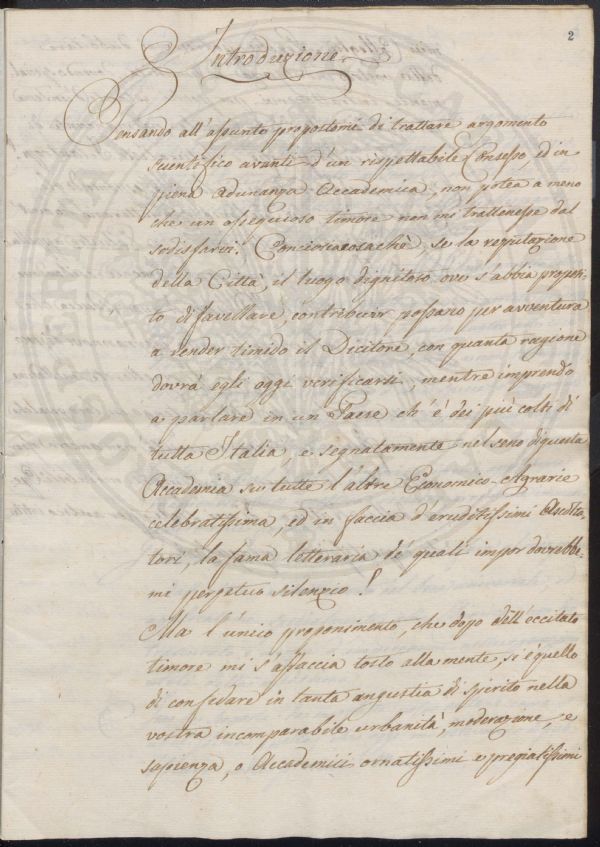 2
Introduzione
Pensando all'assunto propostomi di trattare argomento
scientifico avanti d'un rispettabile Consesso, ed in
piena Adunanza Accademica, non potea a meno
che un ossequioso timore non mi trattenesse dal
sodisfarvi. Conciosiacosachè, se la reputazione
della Città, il luogo dignitoso ove s'abbia propen-
to di favellare, contribuir possano per avventura
a render timido il Dicitore, con quanta ragione
dovrà egli oggi verificarsi, mentre imprendo
a parlare in un Paese ch'è dei più colti di
tutta Italia, e segnatamente nel seno di questa
Accademia su tutte l'altre Economico-Agrarie
celebratissima, ed in faccia d'eruditissimi Audita-
tori, la fama letteraria de' quali impor dovrebbe-
mi perpetuo silenzio!
Ma l'unico proponimento, che dopo dell'eccitato
timore mi s'affaccia tosto alla mente, si è quello
di confidare in tanta angustia di spirito nella
vostra incomparabile urbanità, moderazione, e
sapienza, o Accademici ornatissimi e pregiatissimi